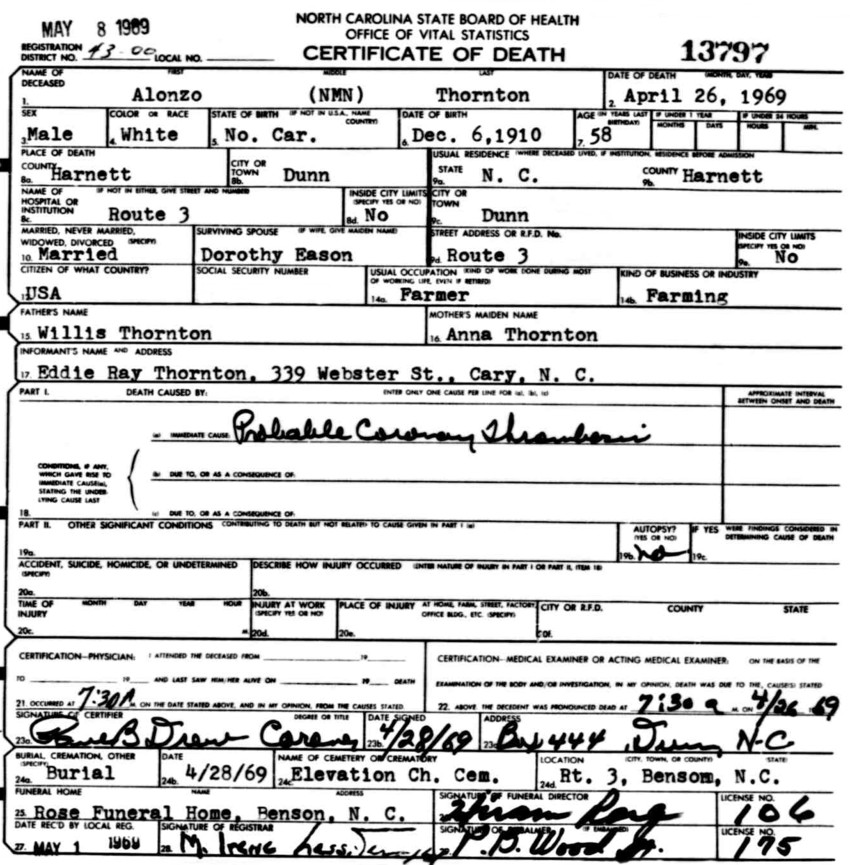 MAY 8 1969
NORTH CAROLINA STATE BOARD OF HEALTH
OFFICE OF VITAL STATISTICS
CERTIFICATE OF DEATH
13797
REGISTRATION DISTRICT NO. 43-00 LOCAL NO.
NAME OF DECEASED FIRST MIDDLE LAST DATE OF DEATH (MONTH, DAY, YEAR)
1. Alonzo (NMN) Thornton 2. April 26, 1969
SEX COLOR OR RACE STATE OF BIRTH (IF NOT IN U.S.A., NAME COUNTRY) DATE OF BIRTH AGE (IN YEARS LAST BIRTHDAY) IF UNDER 1 YEAR MONTHS DAYS IF UNDER 24 HOURS HOURS MIN.
3. Male 4. White 5. No. Car. 6. Dec. 6,1910 7. 58
PLACE OF DEATH USUAL RESIDENCE (WHERE DECEASED LIVED, IF INSTITUTION, RESIDENCE BEFORE ADMISSION
COUNTY 8a. Harnett CITY OR TOWN 8b. Dunn STATE 9a. N. C. COUNTY 9b. Harnett
NAME OF HOSPITAL OR INSTITUTION (IF NOT IN EITHER, GIVE STREET AND NUMBER) 8c. Route 3 INSIDE CITY LIMITS (SPECIFY YES OR NO) 8d. No CITY OR TOWN 9c. Dunn
MARRIED, NEVER MARRIED, WIDOWED, DIVORCED (SPECIFY) SURVIVING SPOUSE (IF WIFE, GIVE MAIDEN NAME) STREET ADDRESS OR R.F.D. No. INSIDE CITY LIMITS (SPECIFY YES OR NO)
10. Married Dorothy Eason 9d. Route 3 9e. No
CITIZEN OF WHAT COUNTRY? SOCIAL SECURITY NUMBER USUAL OCCUPATION (KIND OF WORK DONE DURING MOST OF WORKING LIFE, EVEN IF RETIRED) KIND OF BUSINESS OR INDUSTRY
USA 14a. Farmer 14b. Farming
FATHER'S NAME MOTHER'S MAIDEN NAME
15. Willis Thornton 16. Anna Thornton
INFORMANT'S NAME AND ADDRESS
17. Eddie Ray Thornton, 339 Webster St., Cary, N. C.
PART I. DEATH CAUSED BY: ENTER ONLY ONE CAUSE PER LINE FOR (a), (b), (c) APPROXIMATE INTERVAL BETWEEN ONSET AND DEATH
(a) IMMEDIATE CAUSE Probable Coronary Thrombosis
CONDITIONS, IF ANY, WHICH GAVE RISE TO IMMEDIATE CAUSE(a), STATING THE UNDERLYING CAUSE LAST
(b) DUE TO, OR AS A CONSEQUENCE OF:
18. (c) DUE TO, OR AS A CONSEQUENCE OF:
PART II. OTHER SIGNIFICANT CONDITIONS CONTRIBUTING TO DEATH BUT NOT RELATED TO CAUSE GIVEN IN PART I (a) AUTOPSY? (YES OR NO) IF YES WERE FINDINGS CONSIDERED IN DETERMINING CAUSE OF DEATH
19a. 19b. no 19c.
ACCIDENT, SUICIDE, HOMICIDE, OR UNDETERMINED (SPECIFY) DESCRIBE HOW INJURY OCCURRED (ENTER NATURE OF INJURY IN PART I OR PART II, ITEM 18)
20a. 20b.
TIME OF INJURY MONTH DAY YEAR HOUR INJURY AT WORK (SPECIFY YES OR NO) PLACE OF INJURY AT HOME, FARM, STREET, FACTORY, OFFICE BLDG., ETC. (SPECIFY) CITY OR R.F.D. COUNTY STATE
20c. M. 20d. 20e. 20f.
CERTIFICATION—PHYSICIAN: I ATTENDED THE DECEASED FROM 19 CERTIFICATION—MEDICAL EXAMINER OR ACTING MEDICAL EXAMINER: ON THE BASIS OF THE
TO 19 AND LAST SAW HIM/HER ALIVE ON 19 DEATH EXAMINATION OF THE BODY AND/OR INVESTIGATION, IN MY OPINION, DEATH WAS DUE TO THE CAUSE(S) STATED
21. OCCURRED AT 7:30 A M. ON THE DATE STATED ABOVE, AND IN MY OPINION, FROM THE CAUSES STATED 22. ABOVE. THE DECEDENT WAS PRONOUNCED DEAD AT 7:30 a M. ON 4/26 1969
SIGNATURE OF CERTIFIER DEGREE OR TITLE DATE SIGNED ADDRESS
23a. B Drew Coroner 23b. 4/28/69 23c. Box 444 Dunn, N-C
BURIAL, CREMATION, OTHER (SPECIFY) DATE NAME OF CEMETERY OR CREMATORY LOCATION (CITY, TOWN, OR COUNTY) (STATE)
24a. Burial 24b. 4/28/69 24c. Elevation Ch. Cem. 24d. Rt. 3, Benson, N.C.
FUNERAL HOME NAME ADDRESS SIGNATURE OF FUNERAL DIRECTOR LICENSE NO.
25. Rose Funeral Home, Benson, N. C. Hiram Rose 106
DATE REC'D BY LOCAL REG. SIGNATURE OF REGISTRAR SIGNATURE OF EMBALMER (IF EMBALMED) LICENSE NO.
27. MAY 1 1969 28. M. Irene P. B. Wood Jr. 175